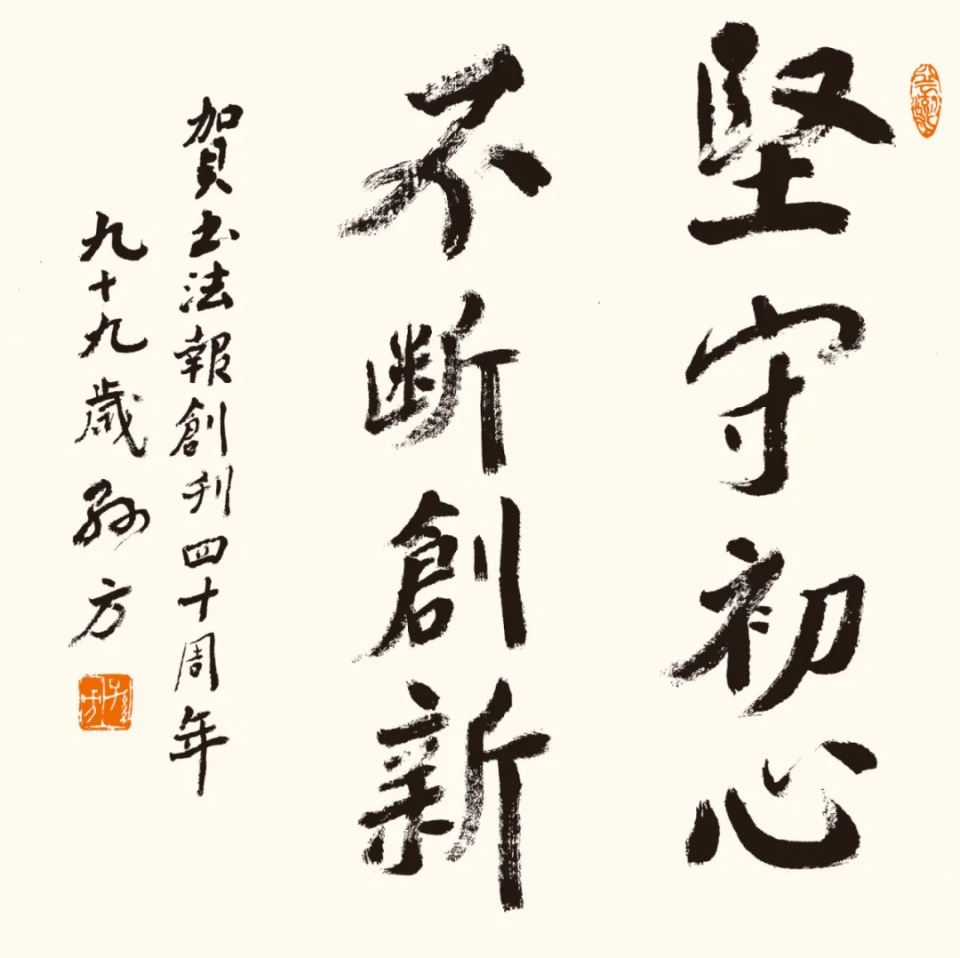 坚守初心
不断創新
賀书法報創刊四十周年
九十九歲孙方